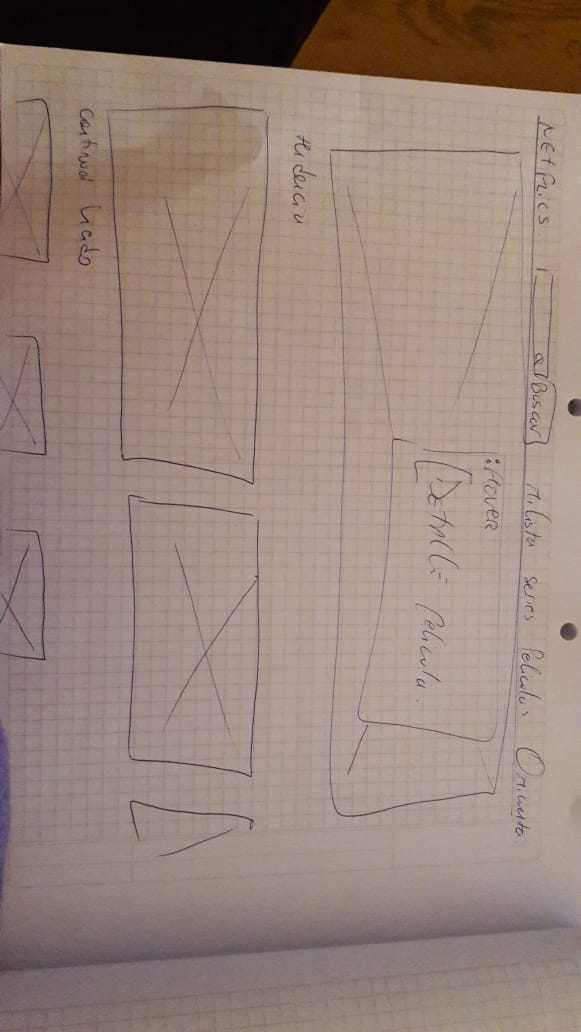 NETFLICS Buscar Mi lista series Peliculas O Mi cuenta
:HOVER
Detalle pelicula.
tendencia
continuar viendo